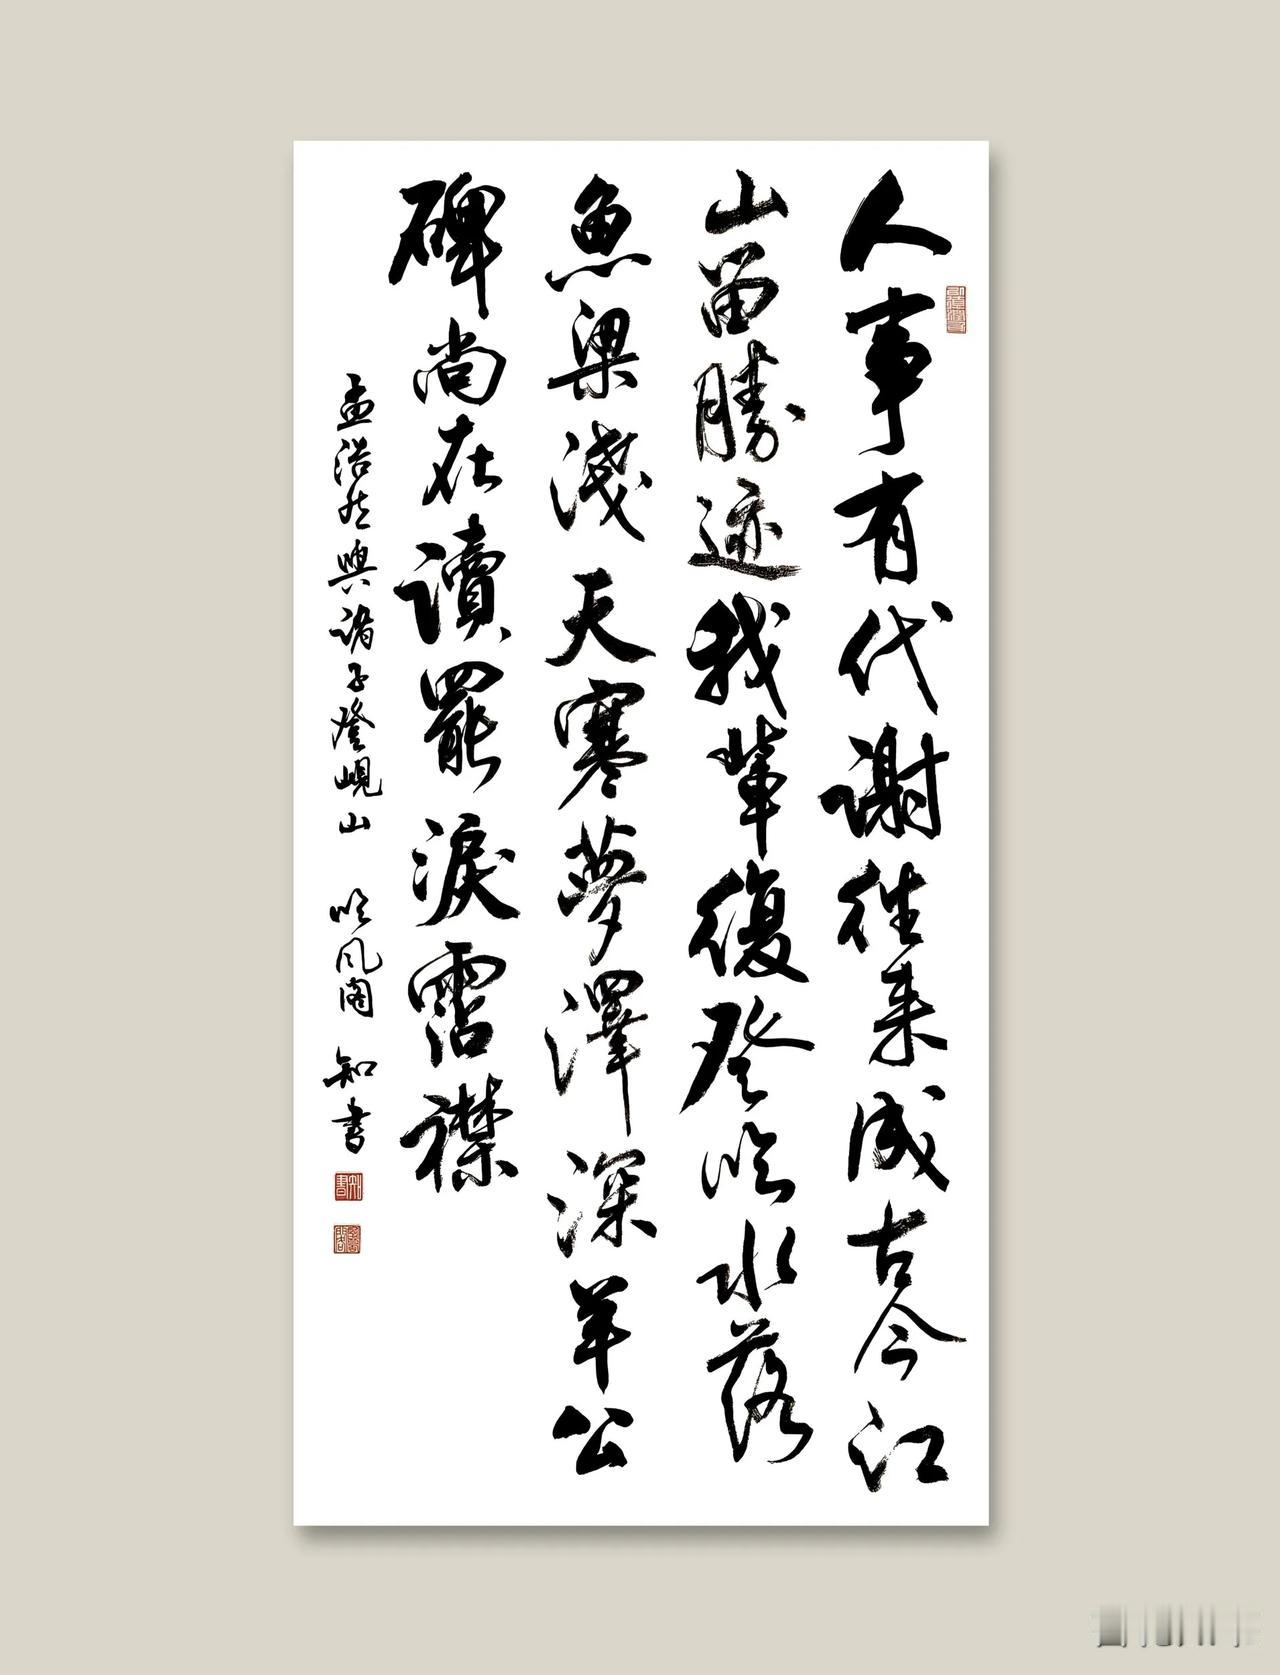 人事有代謝往来成古今江
山留勝迹我輩復登临水落
魚梁淺天寒夢澤深羊公
碑尚在讀罷淚霑襟
孟浩然與諸子登峴山 临风阁 知書